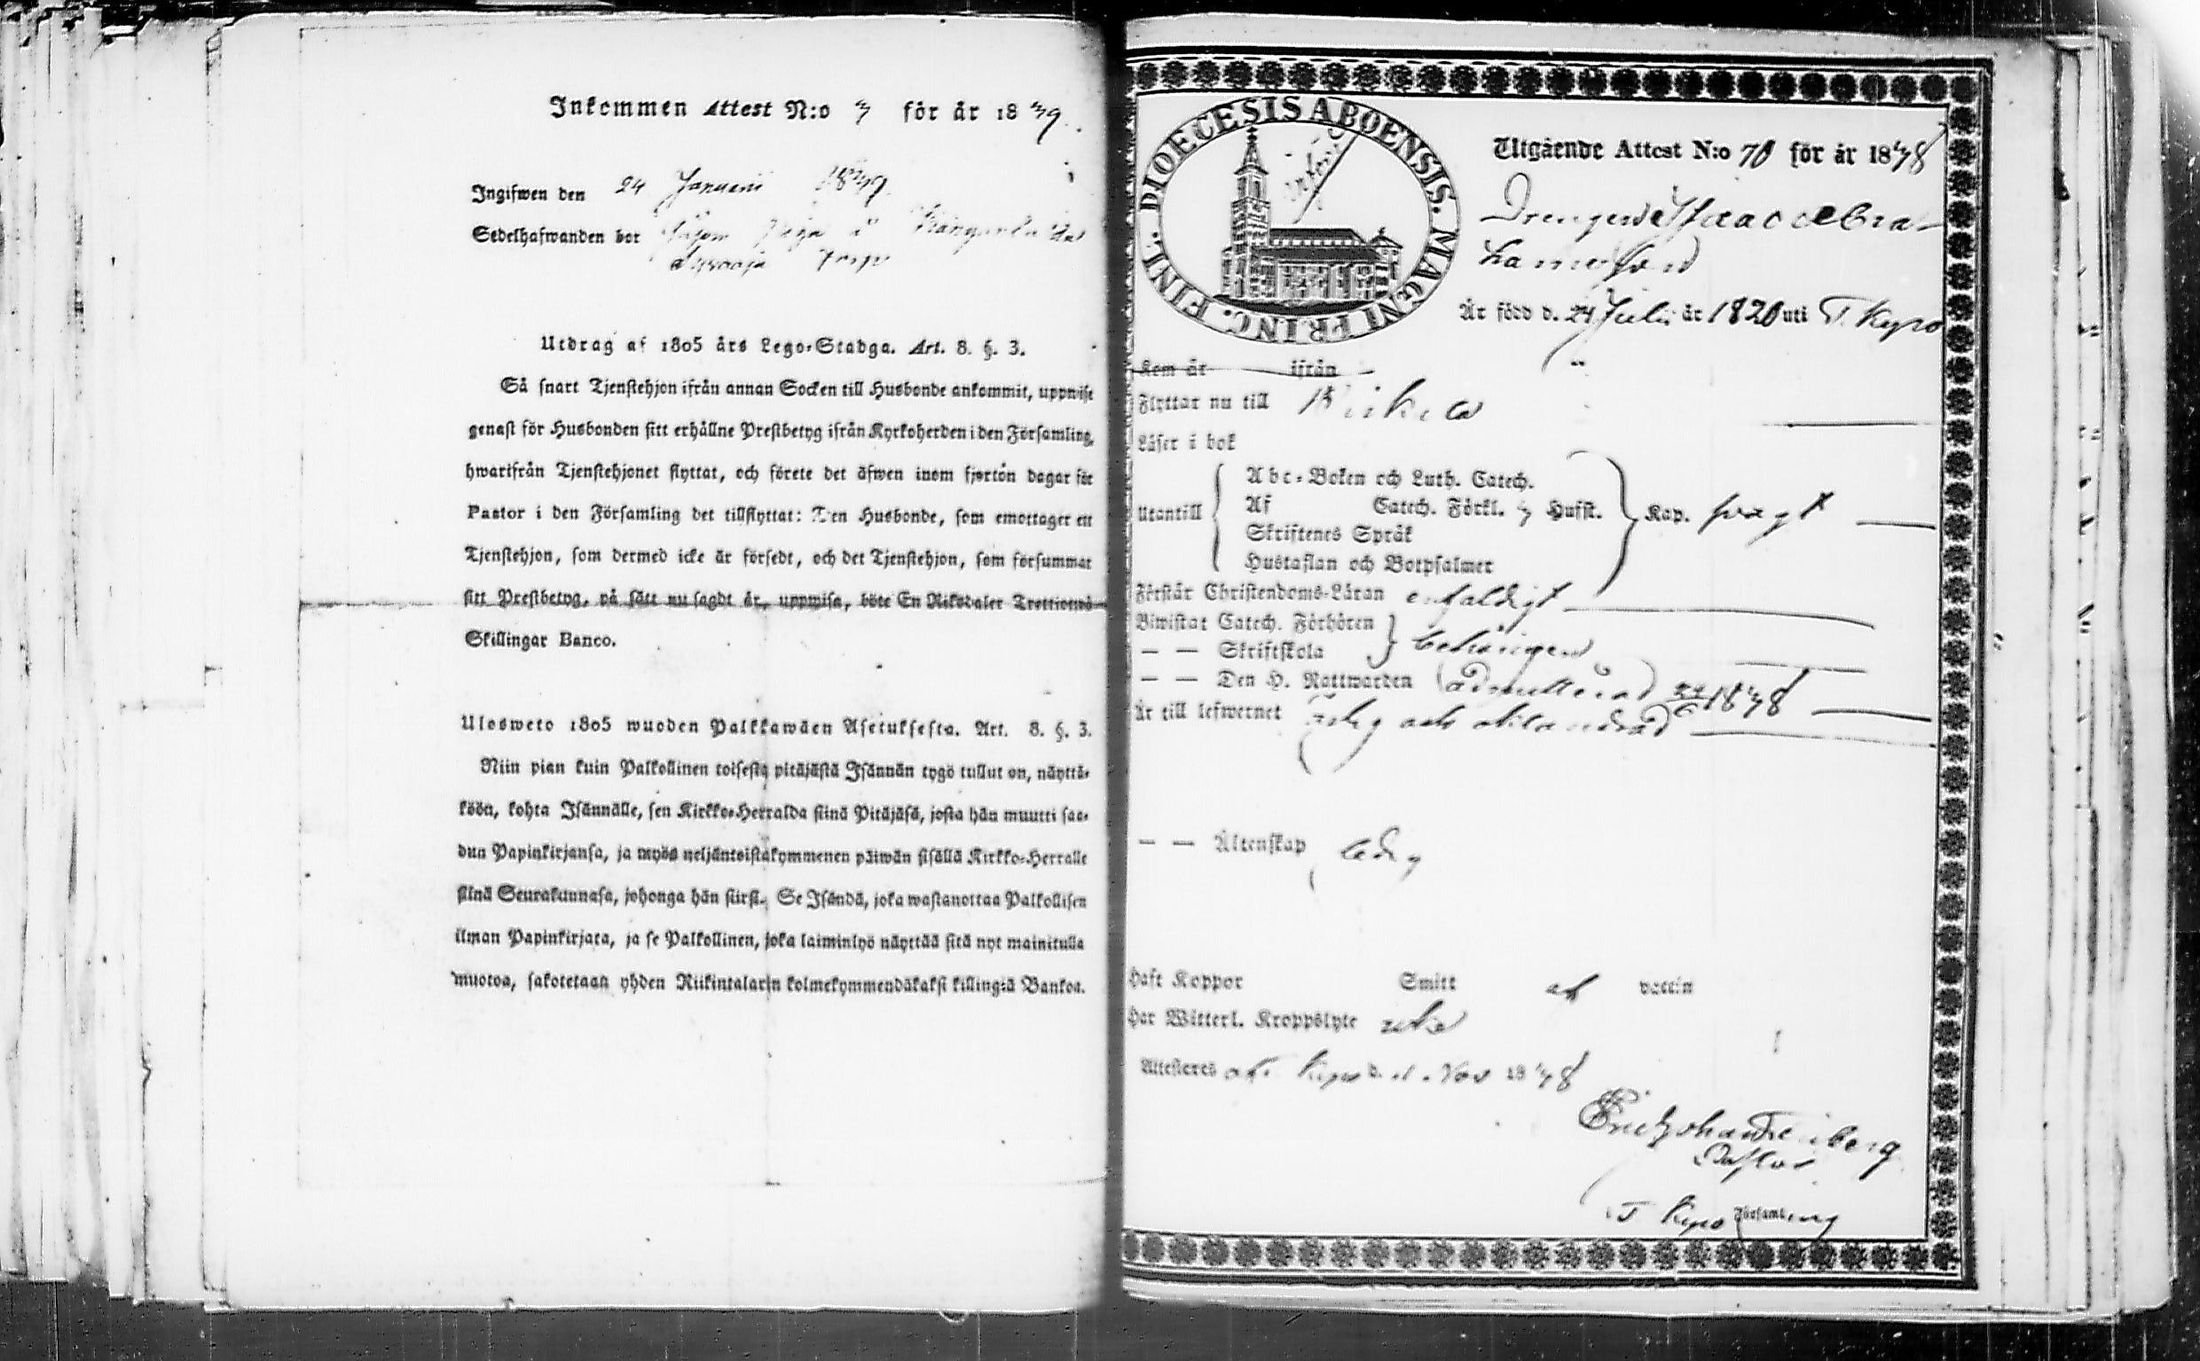 Inkommen Attest N:o för år 1849.
Ingifwen den 24 Januarii 1849.
Sedelhafwanden bor
torp
Utdrag af 1805 års Lego-Stadga. Art. 8. §. 3.
Så snart Tjenstehjon ifrån annan Socken till Husbonde ankommit, uppwise
genast för Husbonden sitt erhållne Prestbetyg ifrån Kyrkoherden i den Församling,
hwarifrån Tjenstehjonet flyttat, och förete det äfwen inom fjorton dagar för
Pastor i den Församling det tillflyttat: Den Husbonde, som emottager ett
Tjenstehjon, som dermed icke är försedt, och det Tjenstehjon, som försummat
sitt Prestbetyg, på sätt nu sagdt är, uppwisa, böte En Riksdaler Trettiotwå
Skillingar Banco.
Ulosweto 1805 wuoden Palkkawäen Asetuksesta. Art. 8. §. 3.
Niin pian kuin Palkollinen toisesta pitäjästä Isännän tygö tullut on, näyttä-
köön, kohta Isännälle, sen Kirkko-Herralda siinä Pitäjäsä, josta hän muutti saa-
dun Papinkirjansa, ja myös neljäntoistakymmenen päiwän sisällä Kirkko-Herralle
siinä Seurakunnasa, johonga hän siirsi. Se Isändä, joka wastanottaa Palkollisen
ilman Papinkirjata, ja se Palkollinen, joka laiminlyö näyttää sitä nyt mainitulla
muotoa, sakotetaan yhden Riikintalarin kolmekymmendäkaksi killingiä Bankoa.
DIOECESIS ABOENSIS. MAGNI PRINC. FINL.
Utgående Attest N:o 70 för år 1848
Drengen Isaac Abra-
hamsson
Är född d. 24 Julii år 1820 uti T. Kyro
Kom år ifrån
Flyttar nu till
Läser i bok
Utantill
Abc-Boken och Luth. Catech.
Af Catech. Förkl. Husst.
Skriftenes Språk
Hustaflan och Botpsalmer
Kap. svagt
Förstår Christendoms-Läran enfaldigt
Biwistat Catech. Förhören
— — Skriftskola
behörigen
— — Den H. Nattwarden admitterad 1848
Är till lefwernet ärlig och
— — Äktenskap ledig
Haft Koppor Smitt af vaccin
Har Witterl. Kroppslyte icke
Attesteras af T. Kyro d. Nov 1848
Pastor
i T. Kyro Församling